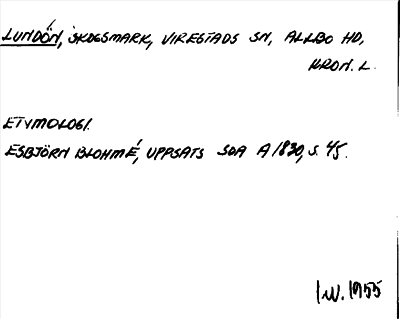 LUNDÖN, SKOGSMARK, VIRESTADS SN, ALLBO HD,
KRON. L.
ETYMOLOGI.
ESBJÖRN BLOHMÉ, UPPSATS SOA A 1830, S. 45.
IW. 1955